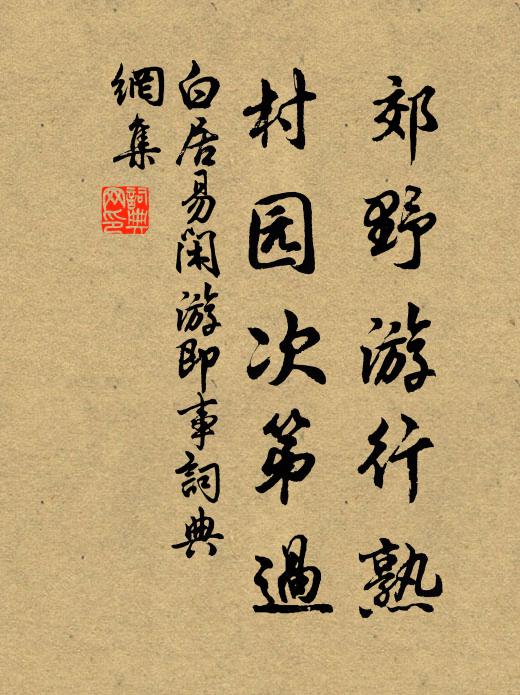 郊野游行熟
村园次第過
白居易閑游即事詞典
網集
詞典
网印